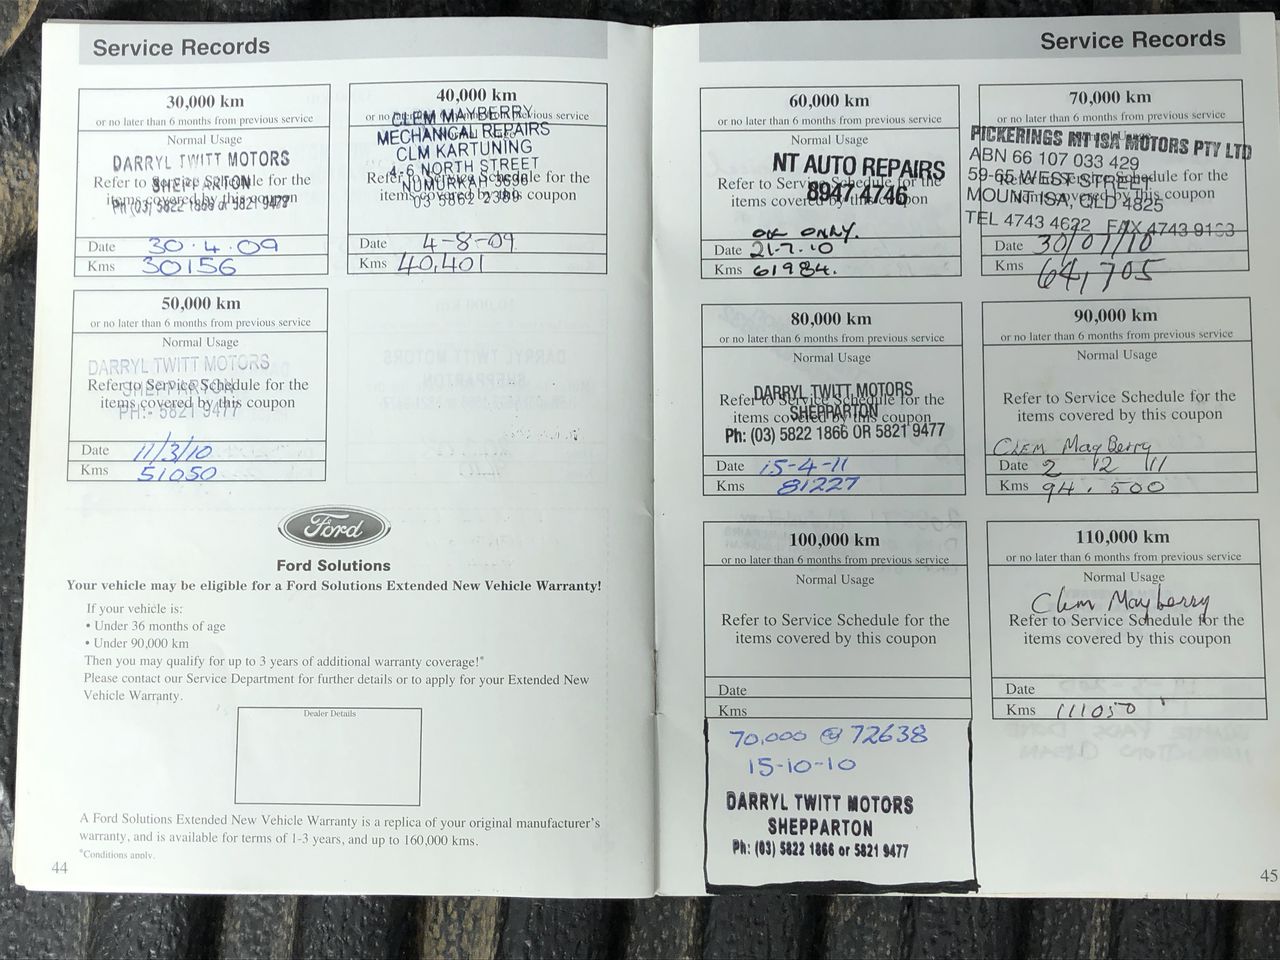 Service Records
30,000 km
or no later than 6 months from previous service
Normal Usage
DARRYL TWITT MOTORS
SHEPPARTON
Refer to Service Schedule for the
items covered by this coupon
Ph (03) 5822 1866 or 5821 9477
Date 30.4.09
Kms 30156
40,000 km
CLEM MAYBERRY
MECHANICAL REPAIRS
CLM KARTUNING
4-6 NORTH STREET
NUMURKAH 3636
03 5862 2389
Date 4-8-09
Kms 40,401
50,000 km
or no later than 6 months from previous service
Normal Usage
DARRYL TWITT MOTORS
Refer to Service Schedule for the
SHEPPARTON
items covered by this coupon
PH:- 5821 9477
Date 11/3/10
Kms 51050
Ford
Ford Solutions
Your vehicle may be eligible for a Ford Solutions Extended New Vehicle Warranty!
If your vehicle is:
• Under 36 months of age
• Under 90,000 km
Then you may qualify for up to 3 years of additional warranty coverage!*
Please contact our Service Department for further details or to apply for your Extended New
Vehicle Warranty.
Dealer Details
A Ford Solutions Extended New Vehicle Warranty is a replica of your original manufacturer's
warranty, and is available for terms of 1-3 years, and up to 160,000 kms.
*Conditions apply.
44
Service Records
60,000 km
or no later than 6 months from previous service
Normal Usage
NT AUTO REPAIRS
Refer to Service Schedule for the
8947 4746
items covered by this coupon
ONLY.
Date 21-7-10
Kms 61984.
70,000 km
or no later than 6 months from previous service
PICKERINGS MT ISA MOTORS PTY LTD
ABN 66 107 033 429
59-65 WEST STREET
MOUNT ISA, QLD 4825
TEL 4743 4622 FAX 4743 9163
Date 30/07/10
Kms 64,705
80,000 km
or no later than 6 months from previous service
Normal Usage
DARRYL TWITT MOTORS
Refer to Service Schedule for the
SHEPPARTON
items covered by this coupon
Ph: (03) 5822 1866 OR 5821 9477
Date 15-4-11
Kms 81227
90,000 km
or no later than 6 months from previous service
Normal Usage
Refer to Service Schedule for the
items covered by this coupon
Clem MayBerry
Date 2 12 11
Kms 94.500
100,000 km
or no later than 6 months from previous service
Normal Usage
Refer to Service Schedule for the
items covered by this coupon
Date
Kms
70,000 @ 72638
15-10-10
DARRYL TWITT MOTORS
SHEPPARTON
Ph: (03) 5822 1866 or 5821 9477
110,000 km
or no later than 6 months from previous service
Normal Usage
Clem Mayberry
Refer to Service Schedule for the
items covered by this coupon
Date
Kms 111050
45